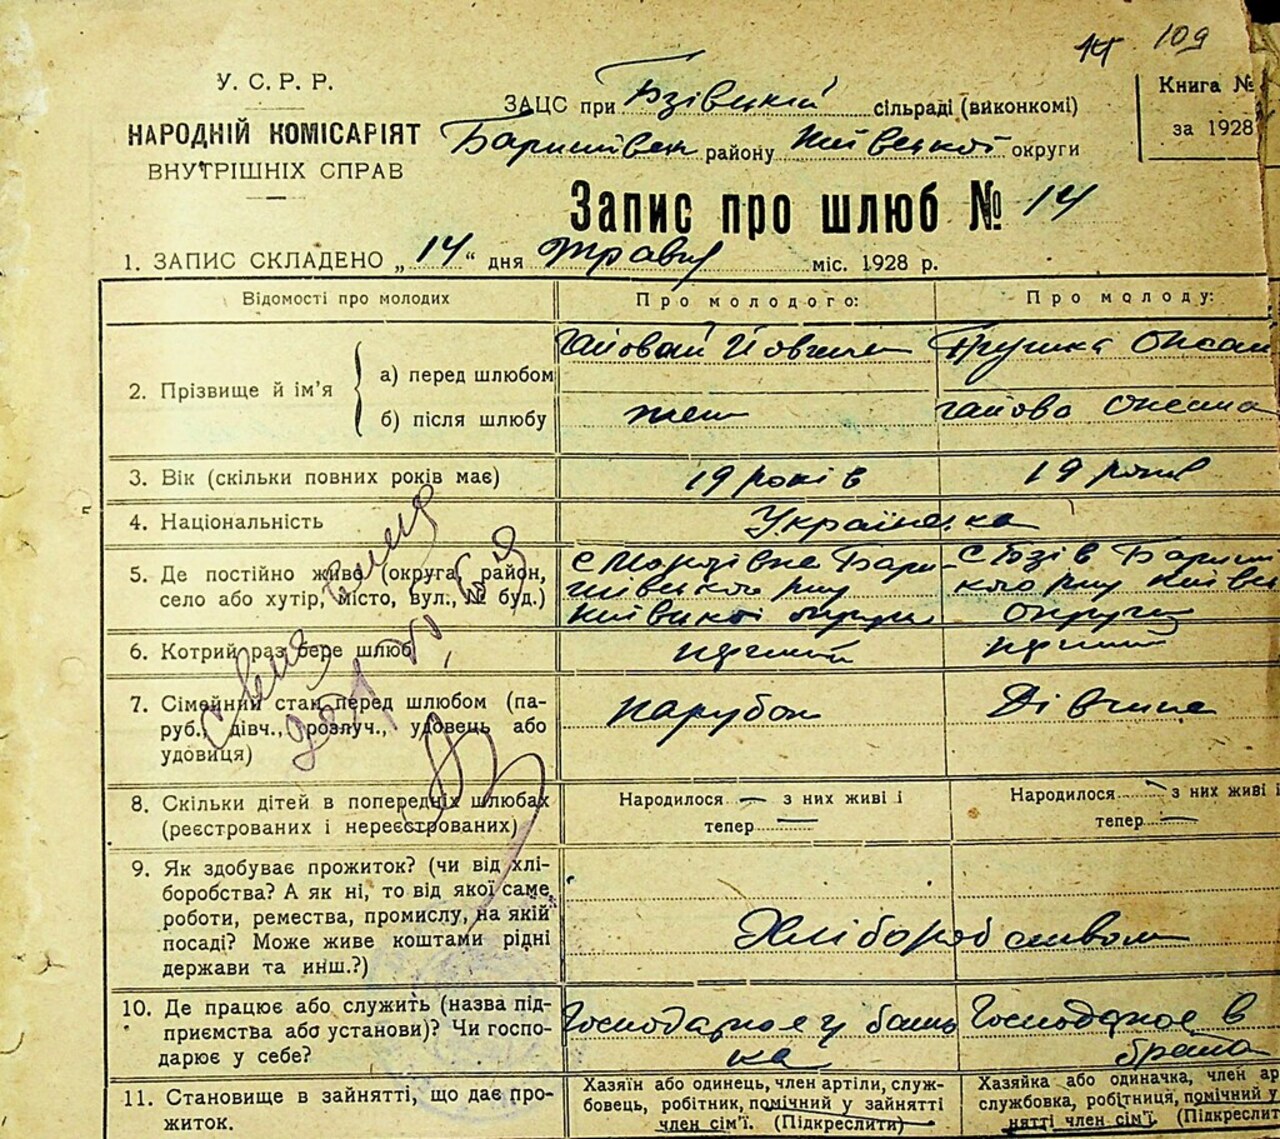 109
У. С. Р. Р.
НАРОДНІЙ КОМІСАРІЯТ
ВНУТРІШНІХ СПРАВ
Книга №
за 1928
ЗАЦС при Бзівській сільраді (виконкомі)
Баришівськ району Київської округи
Запис про шлюб № 14
1. ЗАПИС СКЛАДЕНО „14“ дня Травня міс. 1928 р.
Відомості про молодих
Про молодого:
Про молоду:
2. Прізвище й ім'я
а) перед шлюбом
Гайовий
Оксан
б) після шлюбу
теж
Гайова Оксана
3. Вік (скільки повних років має)
19 років
19 років
4. Національність
Українська
5. Де постійно живе (округа, район, село або хутір, місто, вул., № буд.)
с Бари-
шівського р-ну
Київської округи
с Бзів Бариш
кого р-ну Київсь
Округи
6. Котрий раз бере шлюб
перший
перший
7. Сімейний стан перед шлюбом (па-
руб., дівч., розлуч., удовець або
удовиця)
парубок
Дівчина
8. Скільки дітей в попередніх шлюбах
(реєстрованих і нереєстрованих)
Народилося — з них живі і
тепер —
Народилося — з них живі і
тепер —
9. Як здобуває прожиток? (чи від хлі-
боробства? А як ні, то від якої саме
роботи, ремества, промислу, на якій
посаді? Може живе коштами рідні
держави та инш.?)
Хліборобством
10. Де працює або служить (назва під-
приємства або установи)? Чи госпо-
дарює у себе?
Господарює у бать
ка
Господарює в
брата
11. Становище в зайнятті, що дає про-
житок.
Хазяїн або одинець, член артіли, служ-
бовець, робітник, помічний у зайнятті
член сім'ї. (Підкреслити)
Хазяйка або одиначка, член ар
службовка, робітниця, помічний у
нятті член сім'ї. (Підкреслит